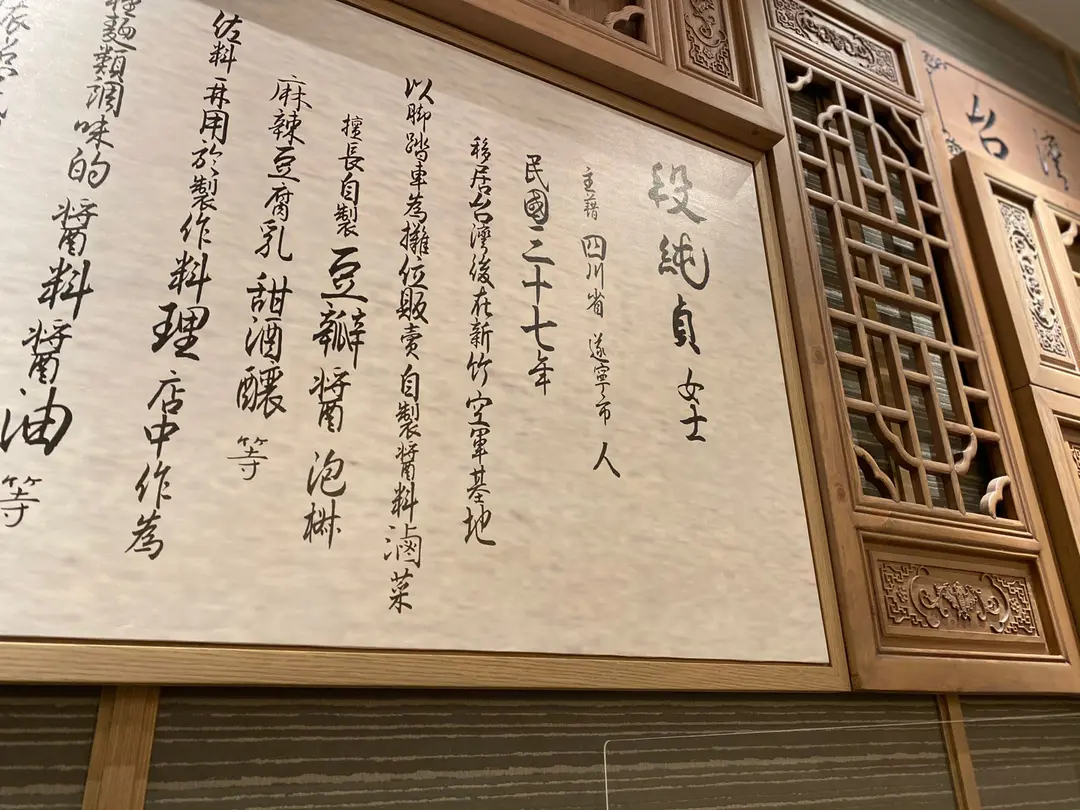 台灣
段純貞女士
主藉四川省遂寧市人
民國三十七年
移居台灣後在新竹空軍基地
以脚踏車為攤位販賣自製醬料滷菜
擅長自製豆瓣醬泡椒
麻辣豆腐乳甜酒釀等
佐料再用於製作料理店中作為
麵類調味的醬料醬油等